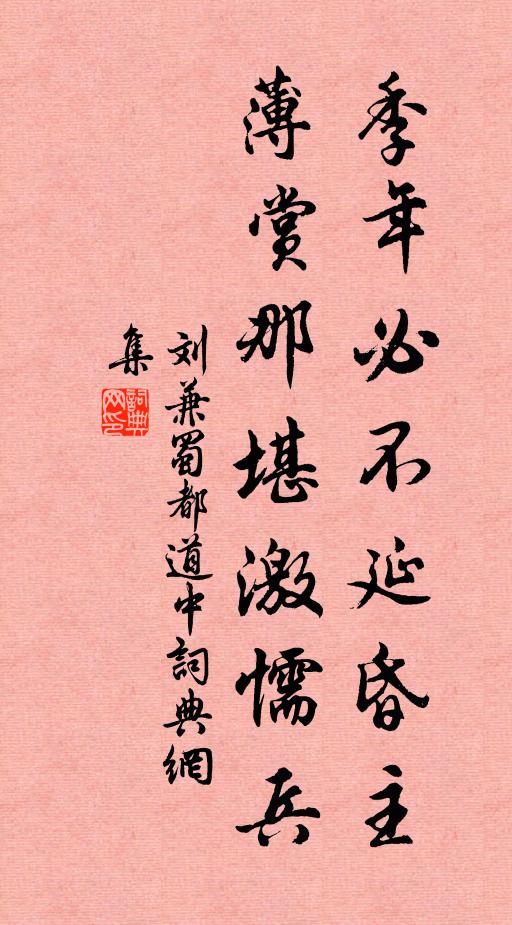 季年必不延昏主
薄赏那堪激懦兵
刘兼蜀都道中詞典網
集
詞典
网印